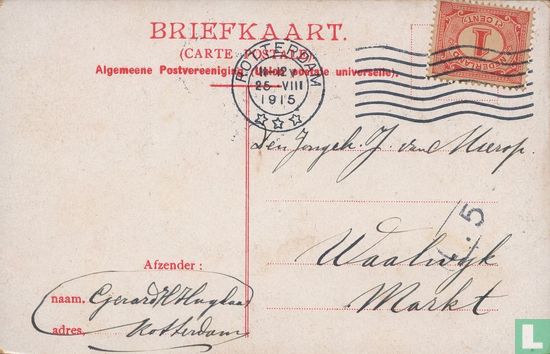 BRIEFKAART.
(CARTE POSTALE)
Algemeene Postvereeniging (Union postale universelle).
ROTTERDAM
11-12V
25 VIII
1915
1 CENT
1
NEDERLAND
Den Jongeh. J. van Mierop.
Waalwijk
Markt
5
Afzender :
naam. Gerard
adres. Rotterdam
catawiki